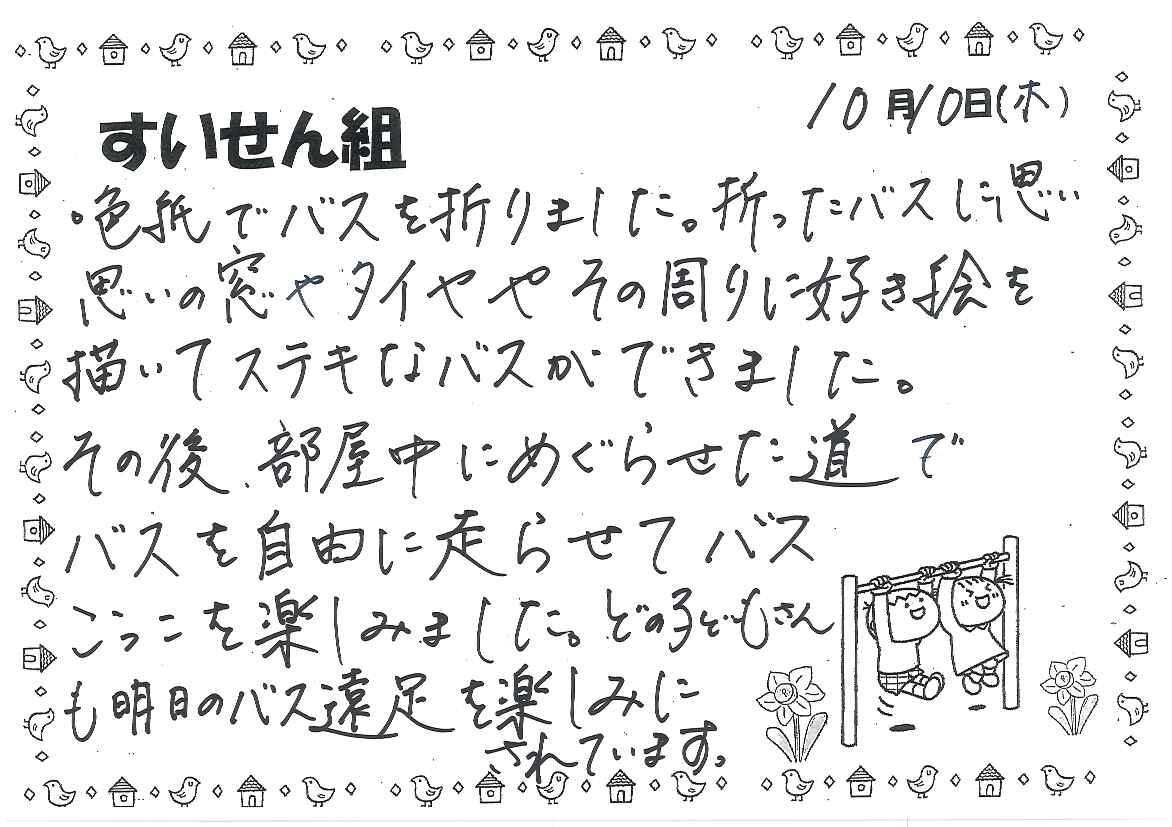 10月10日(木)
すいせん組
・色紙でバスを折りました。折ったバスに思い
思いの窓やタイヤやその周りに好き絵を
描いてステキなバスができました。
その後、部屋中にめぐらせた道で
バスを自由に走らせてバス
ごっこを楽しみました。どの子どもさん
も明日のバス遠足を楽しみに
されています。